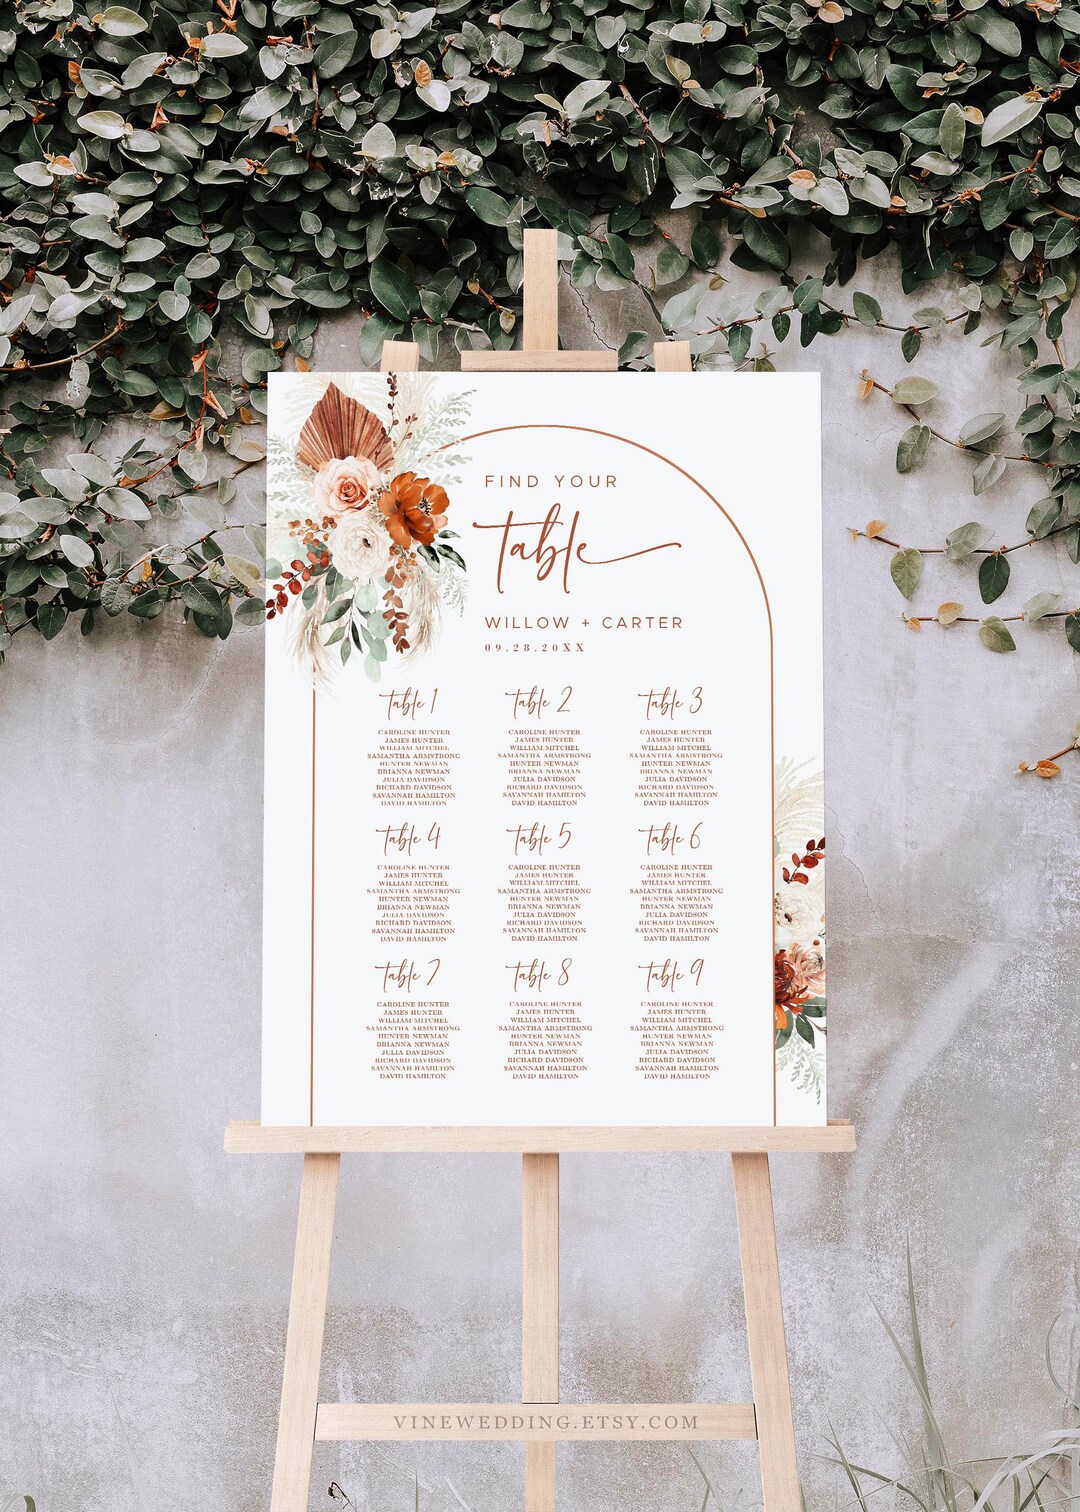 FIND YOUR
table
WILLOW + CARTER
09.28.20XX
table 1
CAROLINE HUNTER
JAMES HUNTER
WILLIAM MITCHEL
SAMANTHA ARMSTRONG
HUNTER NEWMAN
BRIANNA NEWMAN
JULIA DAVIDSON
RICHARD DAVIDSON
SAVANNAH HAMILTON
DAVID HAMILTON
table 2
CAROLINE HUNTER
JAMES HUNTER
WILLIAM MITCHEL
SAMANTHA ARMSTRONG
HUNTER NEWMAN
BRIANNA NEWMAN
JULIA DAVIDSON
RICHARD DAVIDSON
SAVANNAH HAMILTON
DAVID HAMILTON
table 3
CAROLINE HUNTER
JAMES HUNTER
WILLIAM MITCHEL
SAMANTHA ARMSTRONG
HUNTER NEWMAN
BRIANNA NEWMAN
JULIA DAVIDSON
RICHARD DAVIDSON
SAVANNAH HAMILTON
DAVID HAMILTON
table 4
CAROLINE HUNTER
JAMES HUNTER
WILLIAM MITCHEL
SAMANTHA ARMSTRONG
HUNTER NEWMAN
BRIANNA NEWMAN
JULIA DAVIDSON
RICHARD DAVIDSON
SAVANNAH HAMILTON
DAVID HAMILTON
table 5
CAROLINE HUNTER
JAMES HUNTER
WILLIAM MITCHEL
SAMANTHA ARMSTRONG
HUNTER NEWMAN
BRIANNA NEWMAN
JULIA DAVIDSON
RICHARD DAVIDSON
SAVANNAH HAMILTON
DAVID HAMILTON
table 6
CAROLINE HUNTER
JAMES HUNTER
WILLIAM MITCHEL
SAMANTHA ARMSTRONG
HUNTER NEWMAN
BRIANNA NEWMAN
JULIA DAVIDSON
RICHARD DAVIDSON
SAVANNAH HAMILTON
DAVID HAMILTON
table 7
CAROLINE HUNTER
JAMES HUNTER
WILLIAM MITCHEL
SAMANTHA ARMSTRONG
HUNTER NEWMAN
BRIANNA NEWMAN
JULIA DAVIDSON
RICHARD DAVIDSON
SAVANNAH HAMILTON
DAVID HAMILTON
table 8
CAROLINE HUNTER
JAMES HUNTER
WILLIAM MITCHEL
SAMANTHA ARMSTRONG
HUNTER NEWMAN
BRIANNA NEWMAN
JULIA DAVIDSON
RICHARD DAVIDSON
SAVANNAH HAMILTON
DAVID HAMILTON
table 9
CAROLINE HUNTER
JAMES HUNTER
WILLIAM MITCHEL
SAMANTHA ARMSTRONG
HUNTER NEWMAN
BRIANNA NEWMAN
JULIA DAVIDSON
RICHARD DAVIDSON
SAVANNAH HAMILTON
DAVID HAMILTON
VINEWEDDING.ETSY.COM